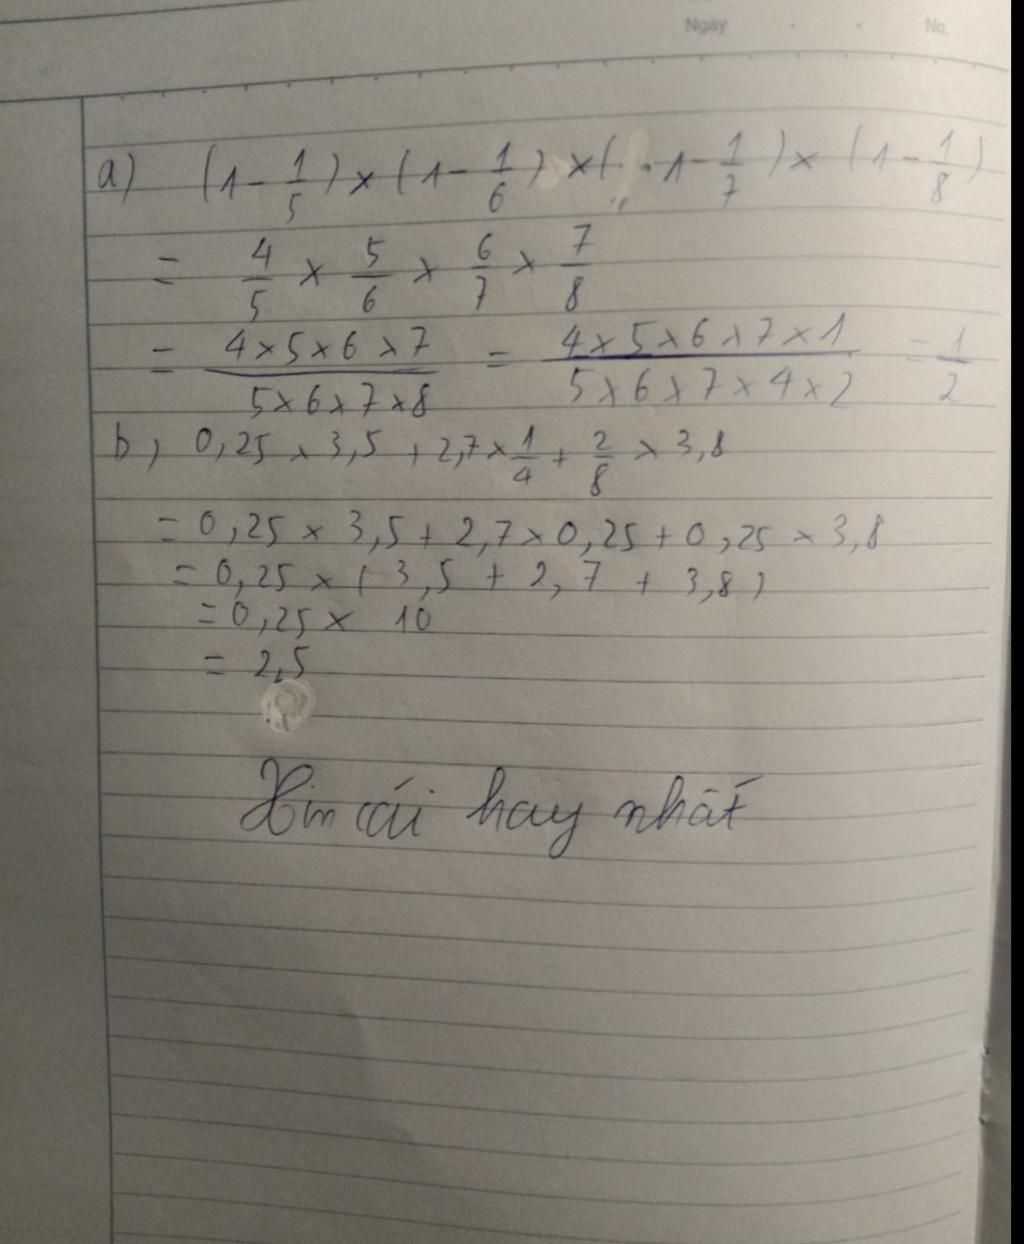 Ngày No.
a) (1 - 1/5) × (1 - 1/6) × (1 - 1/7) × (1 - 1/8)
= 4/5 × 5/6 × 6/7 × 7/8
= (4×5×6×7)/(5×6×7×8) = (4×5×6×7×1)/(5×6×7×4×2) = 1/2
b) 0,25 × 3,5 + 2,7 × 1/4 + 2/8 × 3,8
= 0,25 × 3,5 + 2,7 × 0,25 + 0,25 × 3,8
= 0,25 × ( 3,5 + 2,7 + 3,8 )
= 0,25 × 10
= 2,5
Xin cái hay nhất